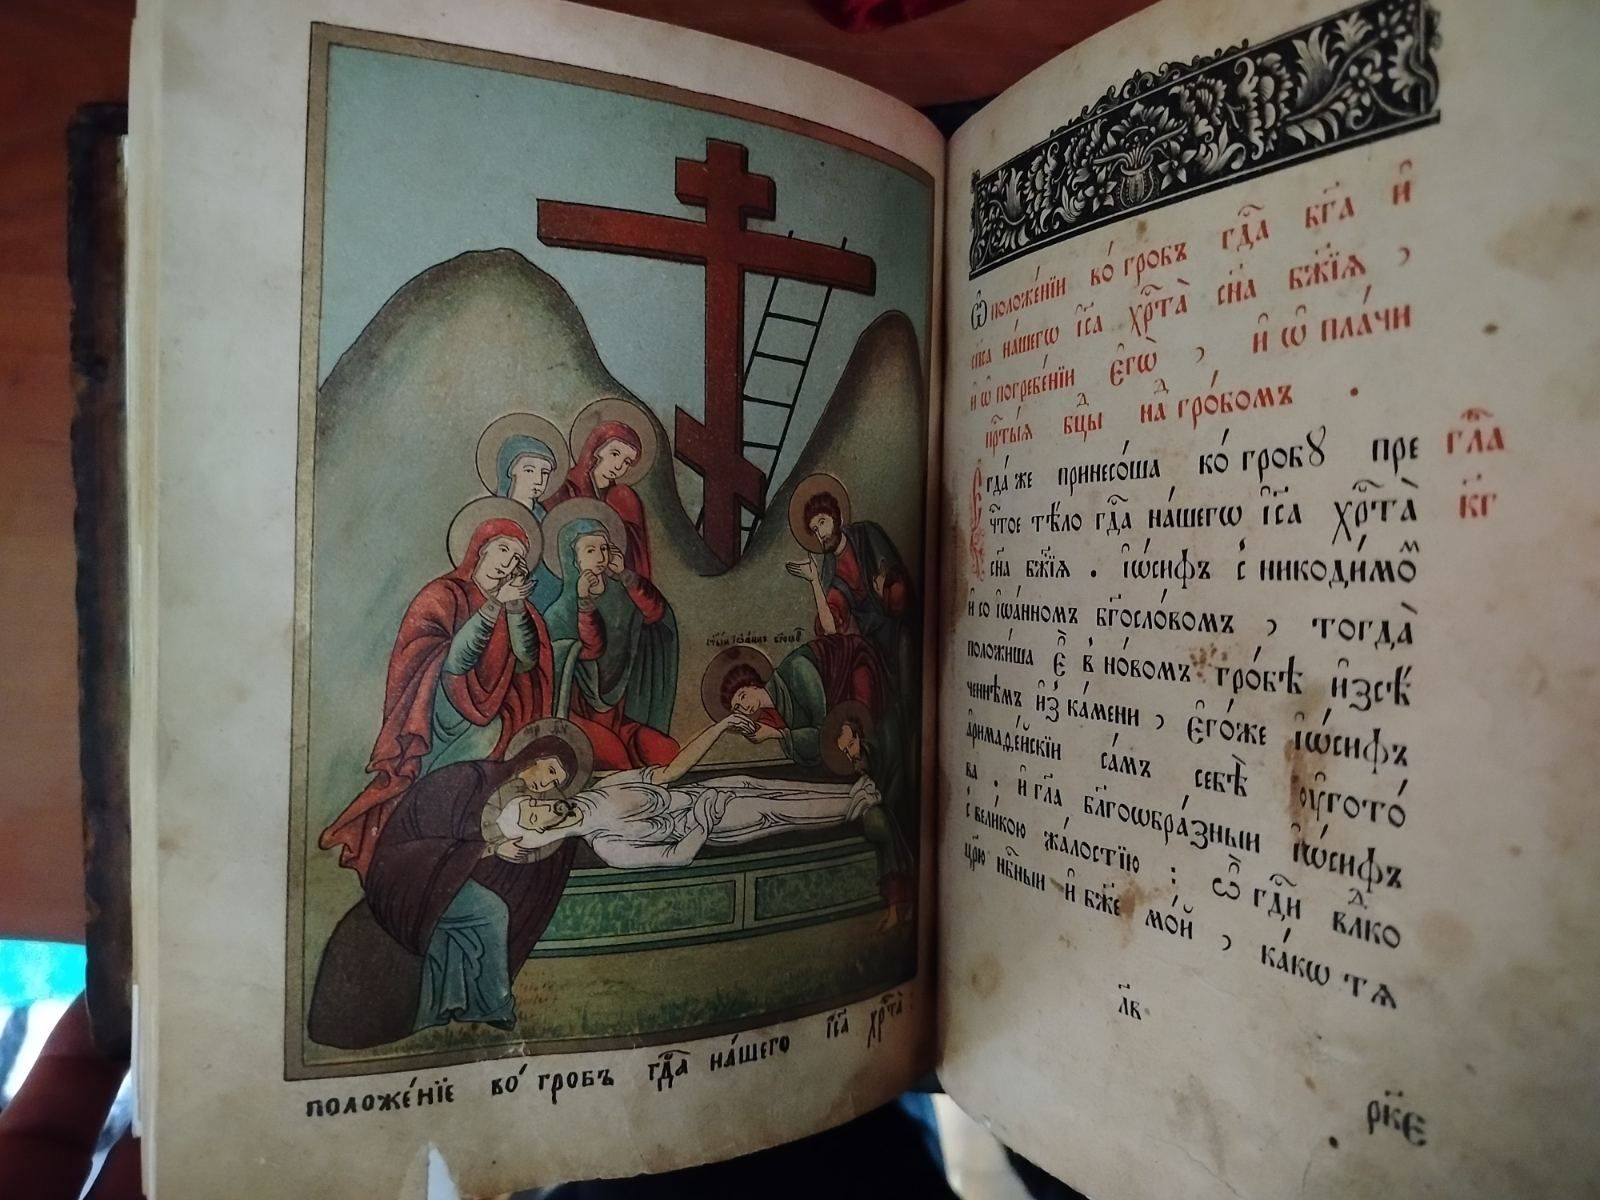 ст҃ыи іѡа́ннъ
положе́нїе во́ гробъ гдⷭ҇а на́шего і҆с҃а хрⷭ҇та̀ :
Ѡ҆ положе́нїи во́ гробъ гдⷭ҇а бг҃а и҆
сп҃са на́шегѡ і҆с҃а хрⷭ҇та̀ сн҃а бж҃їѧ ,
и҆ ѡ҆ погребе́нїи є҆гѡ̀ , и҆ ѡ҆ пла́чи
прⷭ҇тыѧ бцⷣы наⷣ гро́бомъ .
Егда́ же принесо́ша ко́ гробꙋ пре
чⷭ҇тое тѣ́ло гдⷭ҇а на́шегѡ і҆с҃а хрⷭ҇та̀
сн҃а бж҃їѧ . і҆ѡ́сифъ с̾ никоди́моⷨ
и҆ со і҆ѡа́нномъ бг҃осло́вомъ , тогда̀
положи́ша є҆̀ в̾ но́вомъ гро́бѣ и҆зсѣ́
ченнѣмъ и҆з̾ ка́мени , є҆го́же і҆ѡ́сифъ
а҆римаѳе́йскїи са́мъ себѣ̀ ᲂу҆гото́
ва . и҆ гл҃а бл҃гоѡбра́зныи і҆ѡ́сифъ
с̾ вели́кою жа́лостїю : ѽ гдⷭ҇и влⷣко
цр҃ю нбⷭ҇ныи и҆ бж҃е мо́й , ка́кѡ тѧ
глⷡ҇а
к҃г
л҃в
рк҃є